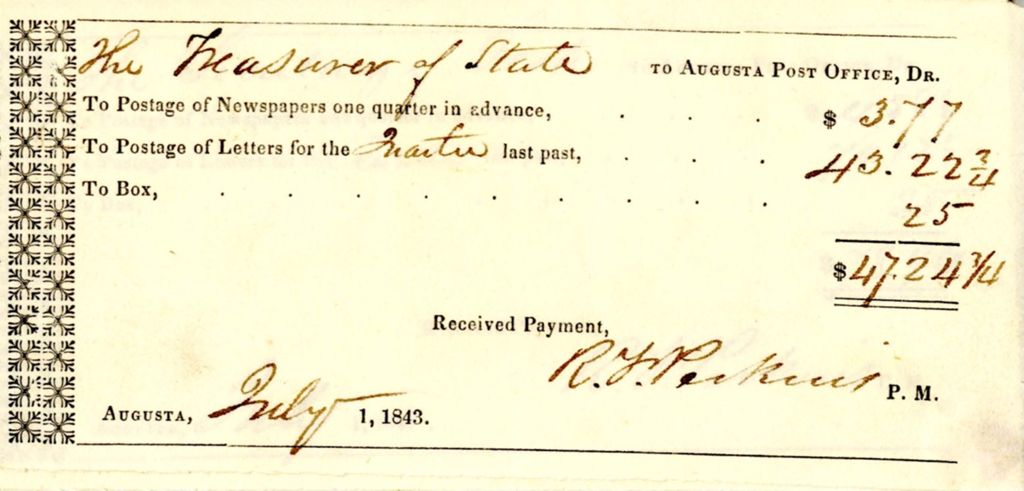 The Treasurer of State TO AUGUSTA POST OFFICE, DR.
To Postage of Newspapers one quarter in advance, . . . $ 3.77
To Postage of Letters for the Quarter last past, . . . 43.22 3/4
To Box, . . . . . . . . 25
$47.24 3/4
Received Payment,
R. F. Perkins P. M.
AUGUSTA, July 1, 1843.